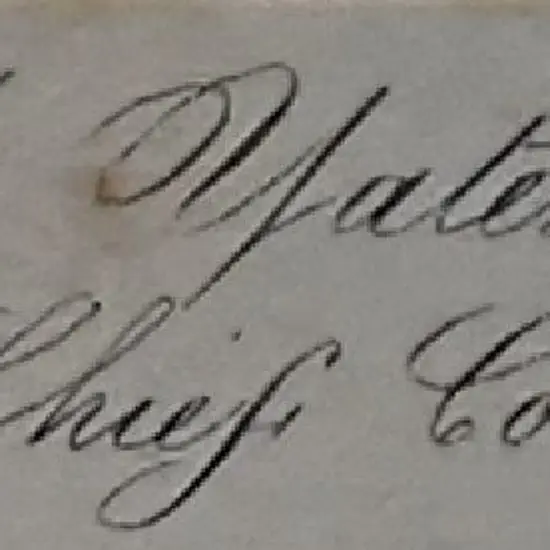 Yates
Chief Co